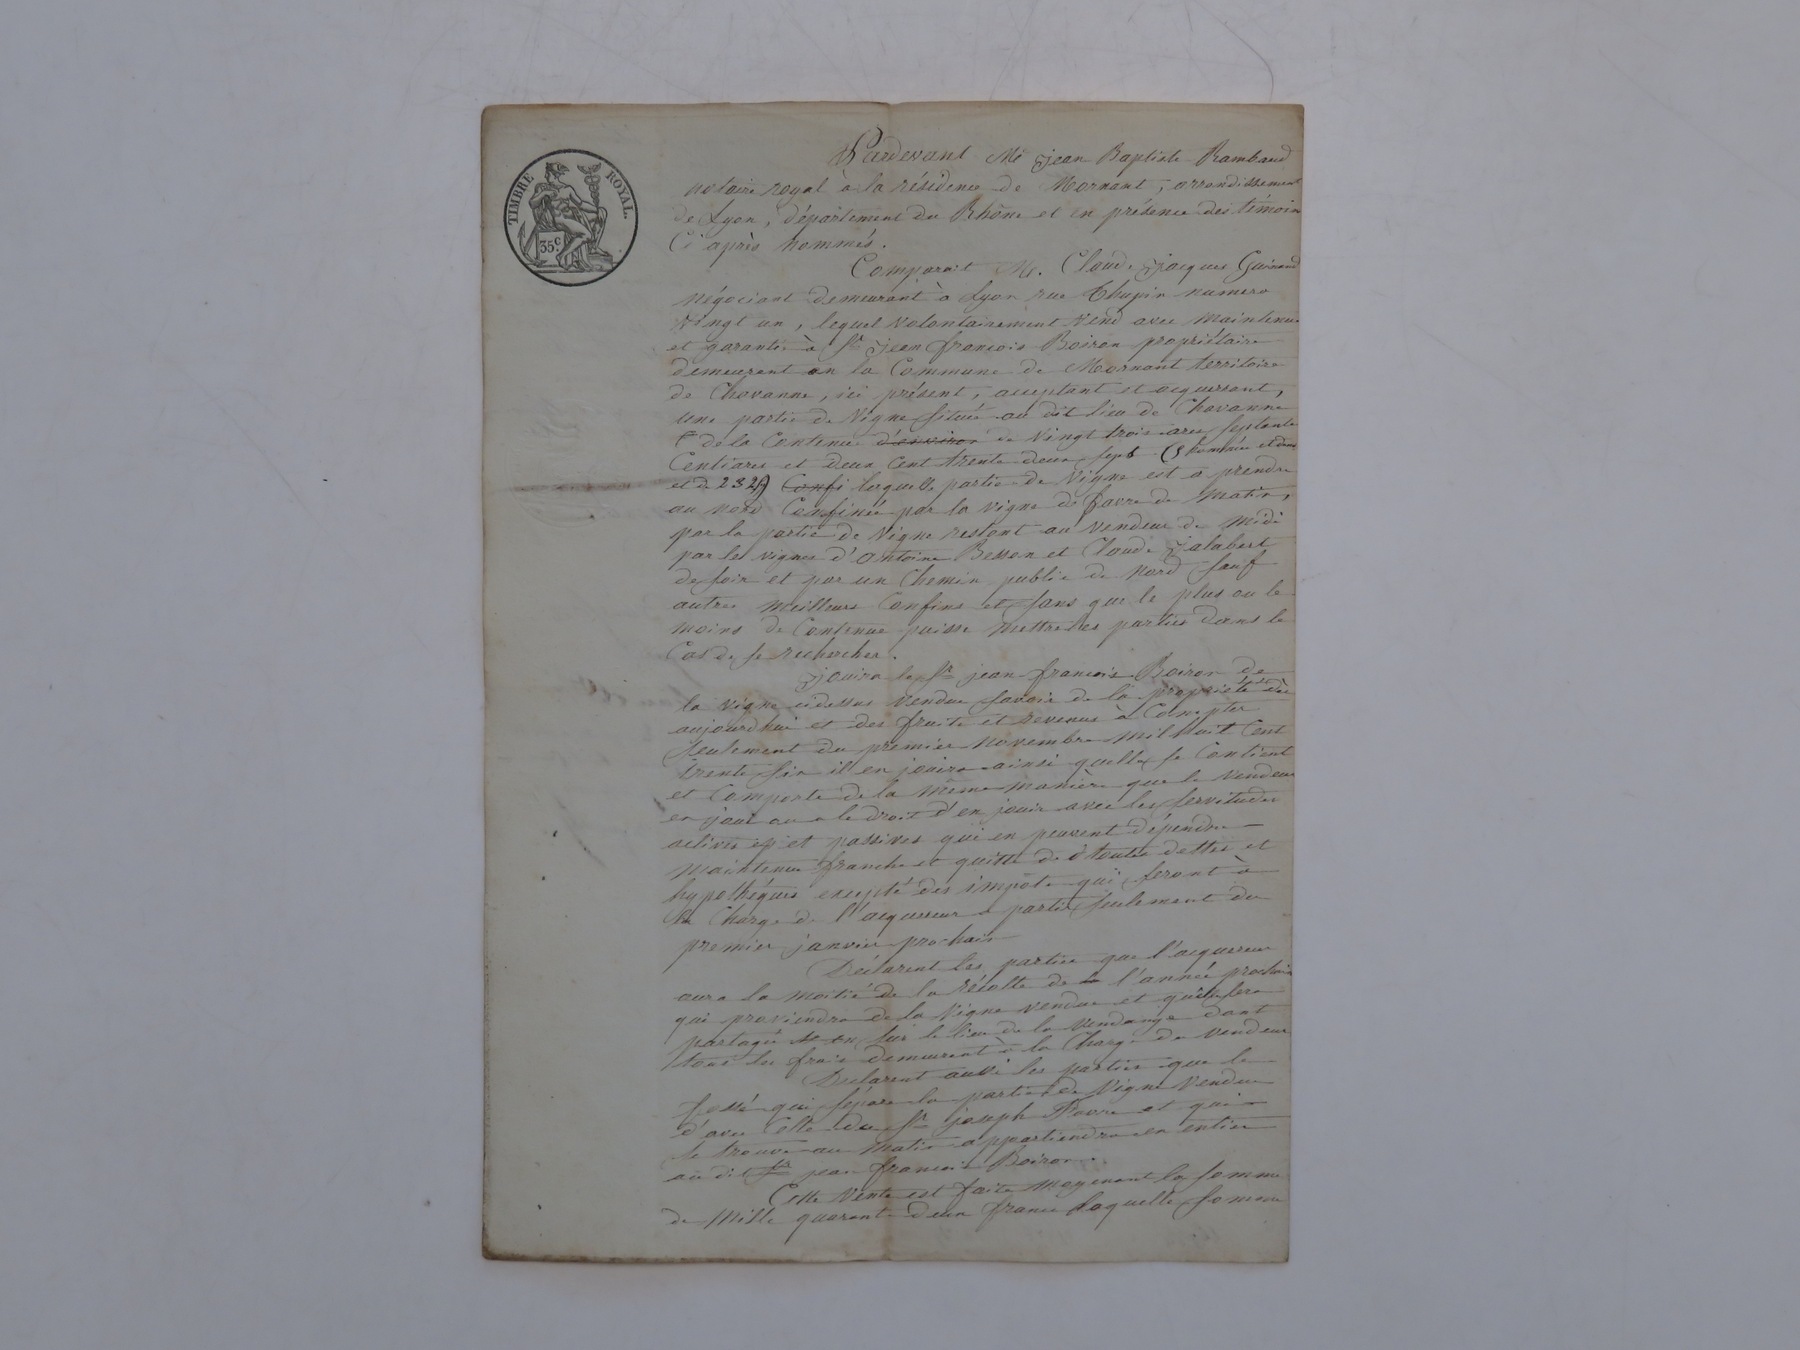 TIMBRE ROYAL.
35c.
Pardevant Me Jean Baptiste Rambaud
notaire royal à la résidence de Mornant, arrondissement
de Lyon, département du Rhône et en présence des témoins
Ci après nommés.
Comparait Mr. Claude Jacques Guinand
négociant demeurant à Lyon rue Thupin numero
vingt un, lequel volontairement vend avec maintenue
et garantie à Sr Jean françois Boiron propriétaire
demeurant en la Commune de Mornant territoire
de Chavanne, ici présent, acceptant et acquerrant,
une partie de vigne située au dit lieu de Chavanne
de la Contenue d'environ de vingt trois ares septante
Centiares et deux cent trente deux
et de 232 Confi laquelle partie de vigne est a prendre
au nord Confinée par la vigne de favre de matin,
par la partie de vigne restant au vendeur de midi
par les vignes d'antoine Besson et Claude Jalabert
de soir et par un Chemin public de nord sauf
autres meilleurs Confins et sans que le plus ou le
moins de Contenue puisse mettre les parties dans le
Cas de se rechercher.
Jouira le Sr jean françois Boiron de
la vigne cidessus vendue savoir de la propriété dès
aujourd'hui et des fruits et revenus à Compter
seulement du premier novembre mil huit Cent
trente six il en jouira ainsi quelle se Contient
et Comporte de la même manière que le vendeur
en joui ou a le droit d'en jouir avec les servitudes
actives et passives qui en peuvent dépendre
maintenue franche et quitte de toutes dettes et
hypothéques excepté des impôts qui seront à
la Charge de l'acquereur a partir seulement du
premier janvier prochain
Déclarent les parties que l'acquereur
aura la moitié de la récolte de la l'année prochaine
qui proviendra de la vigne vendue et qu'elle sera
partagée sur le lieu de la vendange dont
tous les frais demeurent à la Charge du vendeur
Declarent aussi les parties que le
fossé qui sépare la partie de vigne vendue
d'avec Celle du Sr joseph Favre et qui
se trouve au matin appartiendra en entier
au dit Sr jean françois Boiron.
Cette vente est faite moyenant la somme
de Mille quarante deux francs laquelle somme